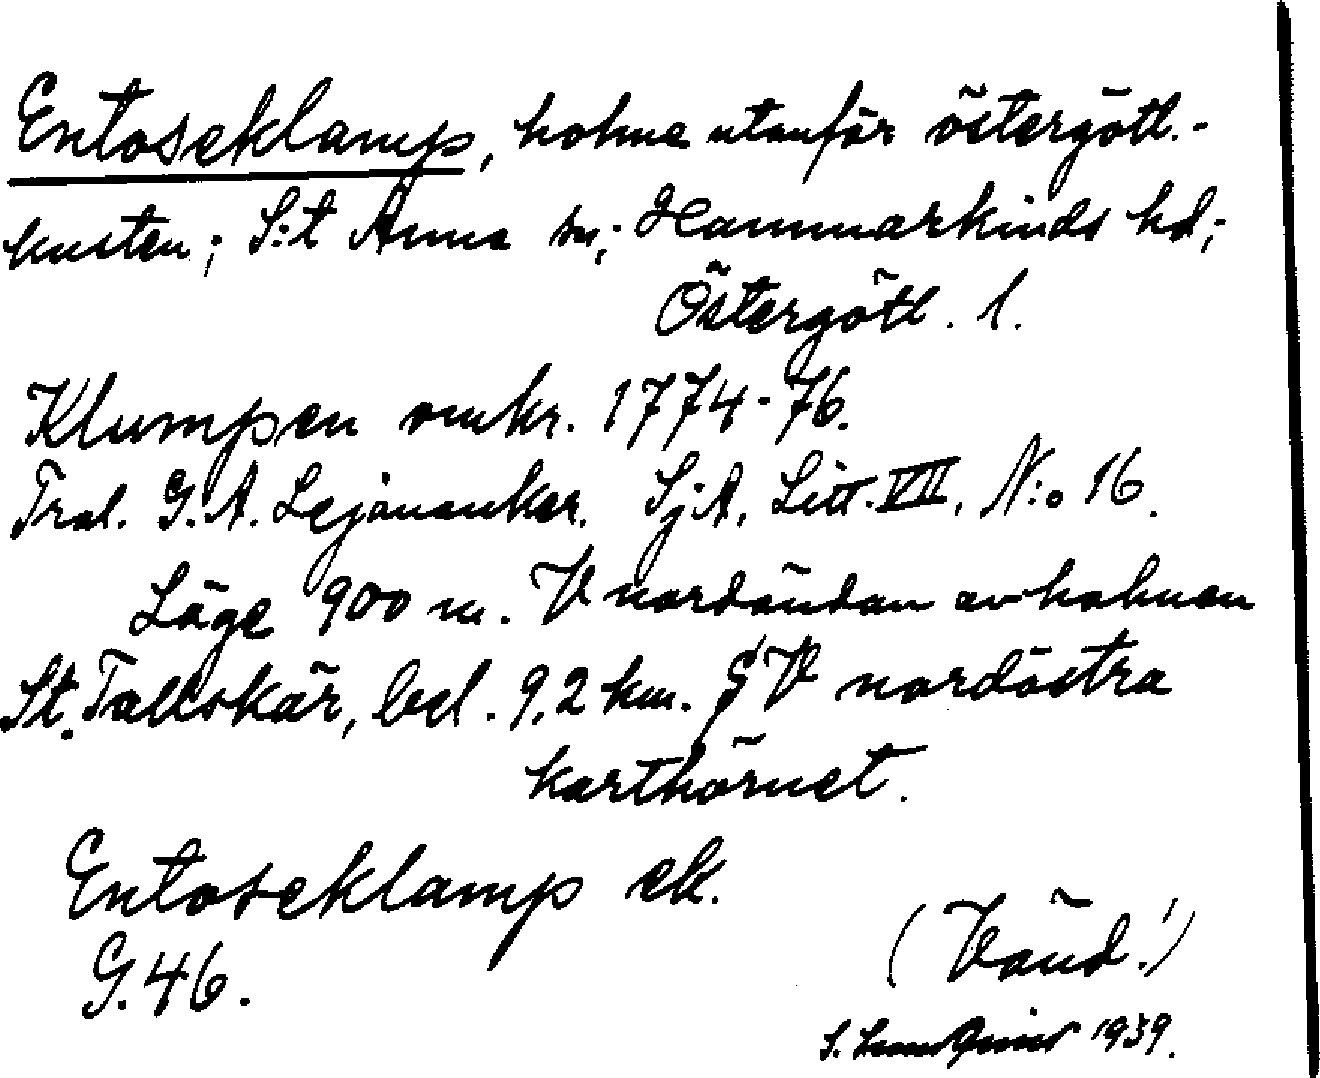 Entoseklamp, holme utanför östergötl.-
kusten; S:t Anna sn; Hammarkinds hd;
Östergötl. l.
Klumpen omkr. 1774-76.
Tral. G. A. Lejonanker. SjA. Litt. VII, N:o 16.
Läge 900 m. V nordändan av holmen
St. Tallskär, bel. 9,2 km. SV nordöstra
karthörnet.
Entoseklamp ek.
G. 46.
(Vänd!)
S. 1939.